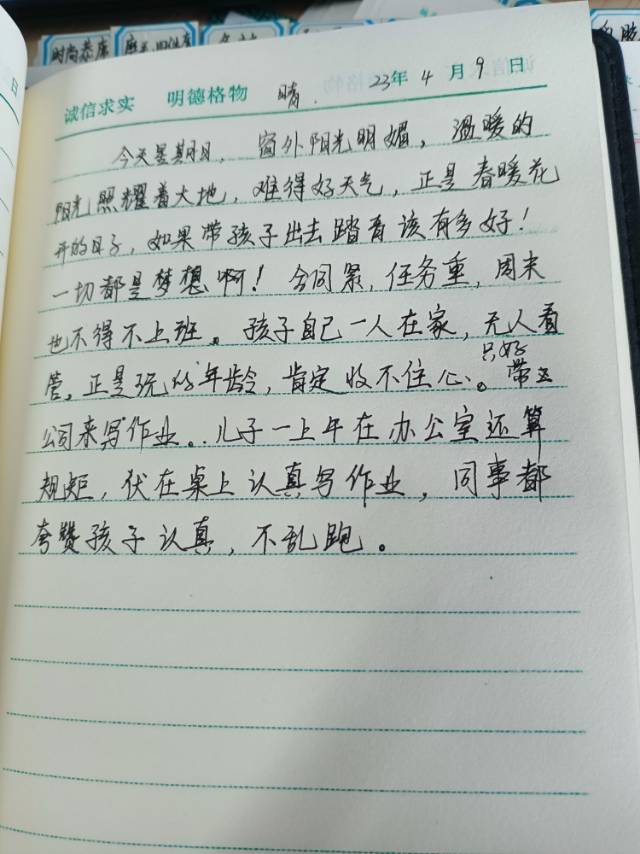 时尚泰库
诚信求实 明德格物 晴. 23年4月9日
今天是期日，窗外阳光明媚，温暖的
阳光照耀着大地，难得好天气，正是春暖花
开的日子，如果带孩子出去踏青该有多好！
一切都是梦想啊！合同累，任务重，周末
也不得不上班。孩子自己一人在家，无人看
管。正是玩的年龄，肯定收不住心。只好带
公司来写作业。儿子一上午在办公室还算
规矩，伏在桌上认真写作业，同事都
夸赞孩子认真，不乱跑。